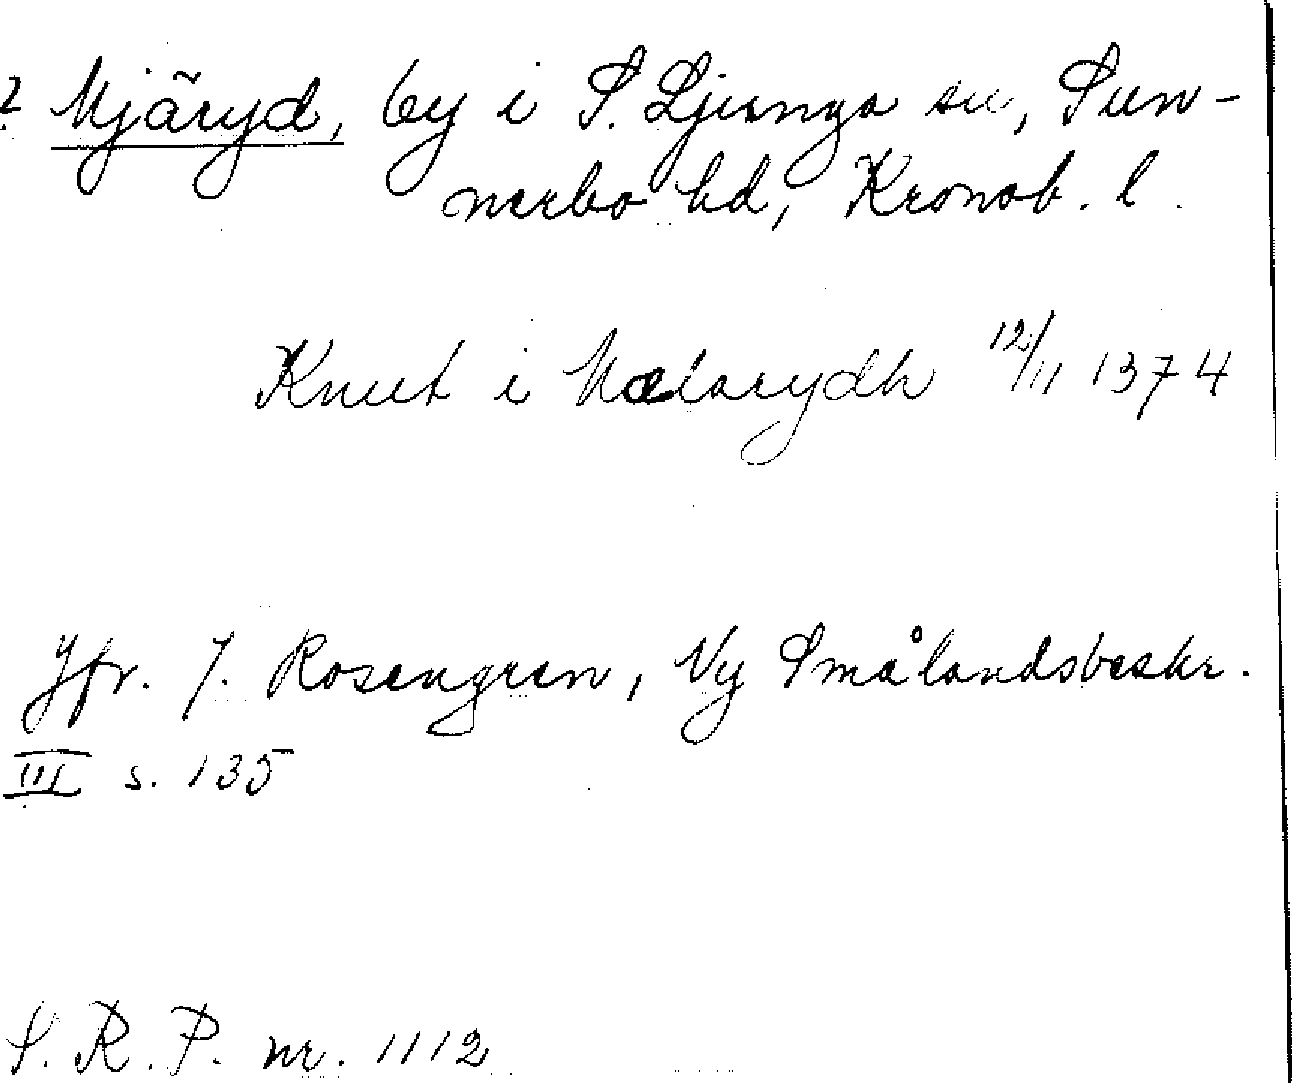 ? Mjäryd, by i S. Ljunga sn, Sun-
nerbo hd, Kronob. l.
Knut i Mælarydh 12/11 1374
Jfr. J. Rosengren, Ny Smålandsbeskr.
III s. 135
S. R. P. nr. 1112